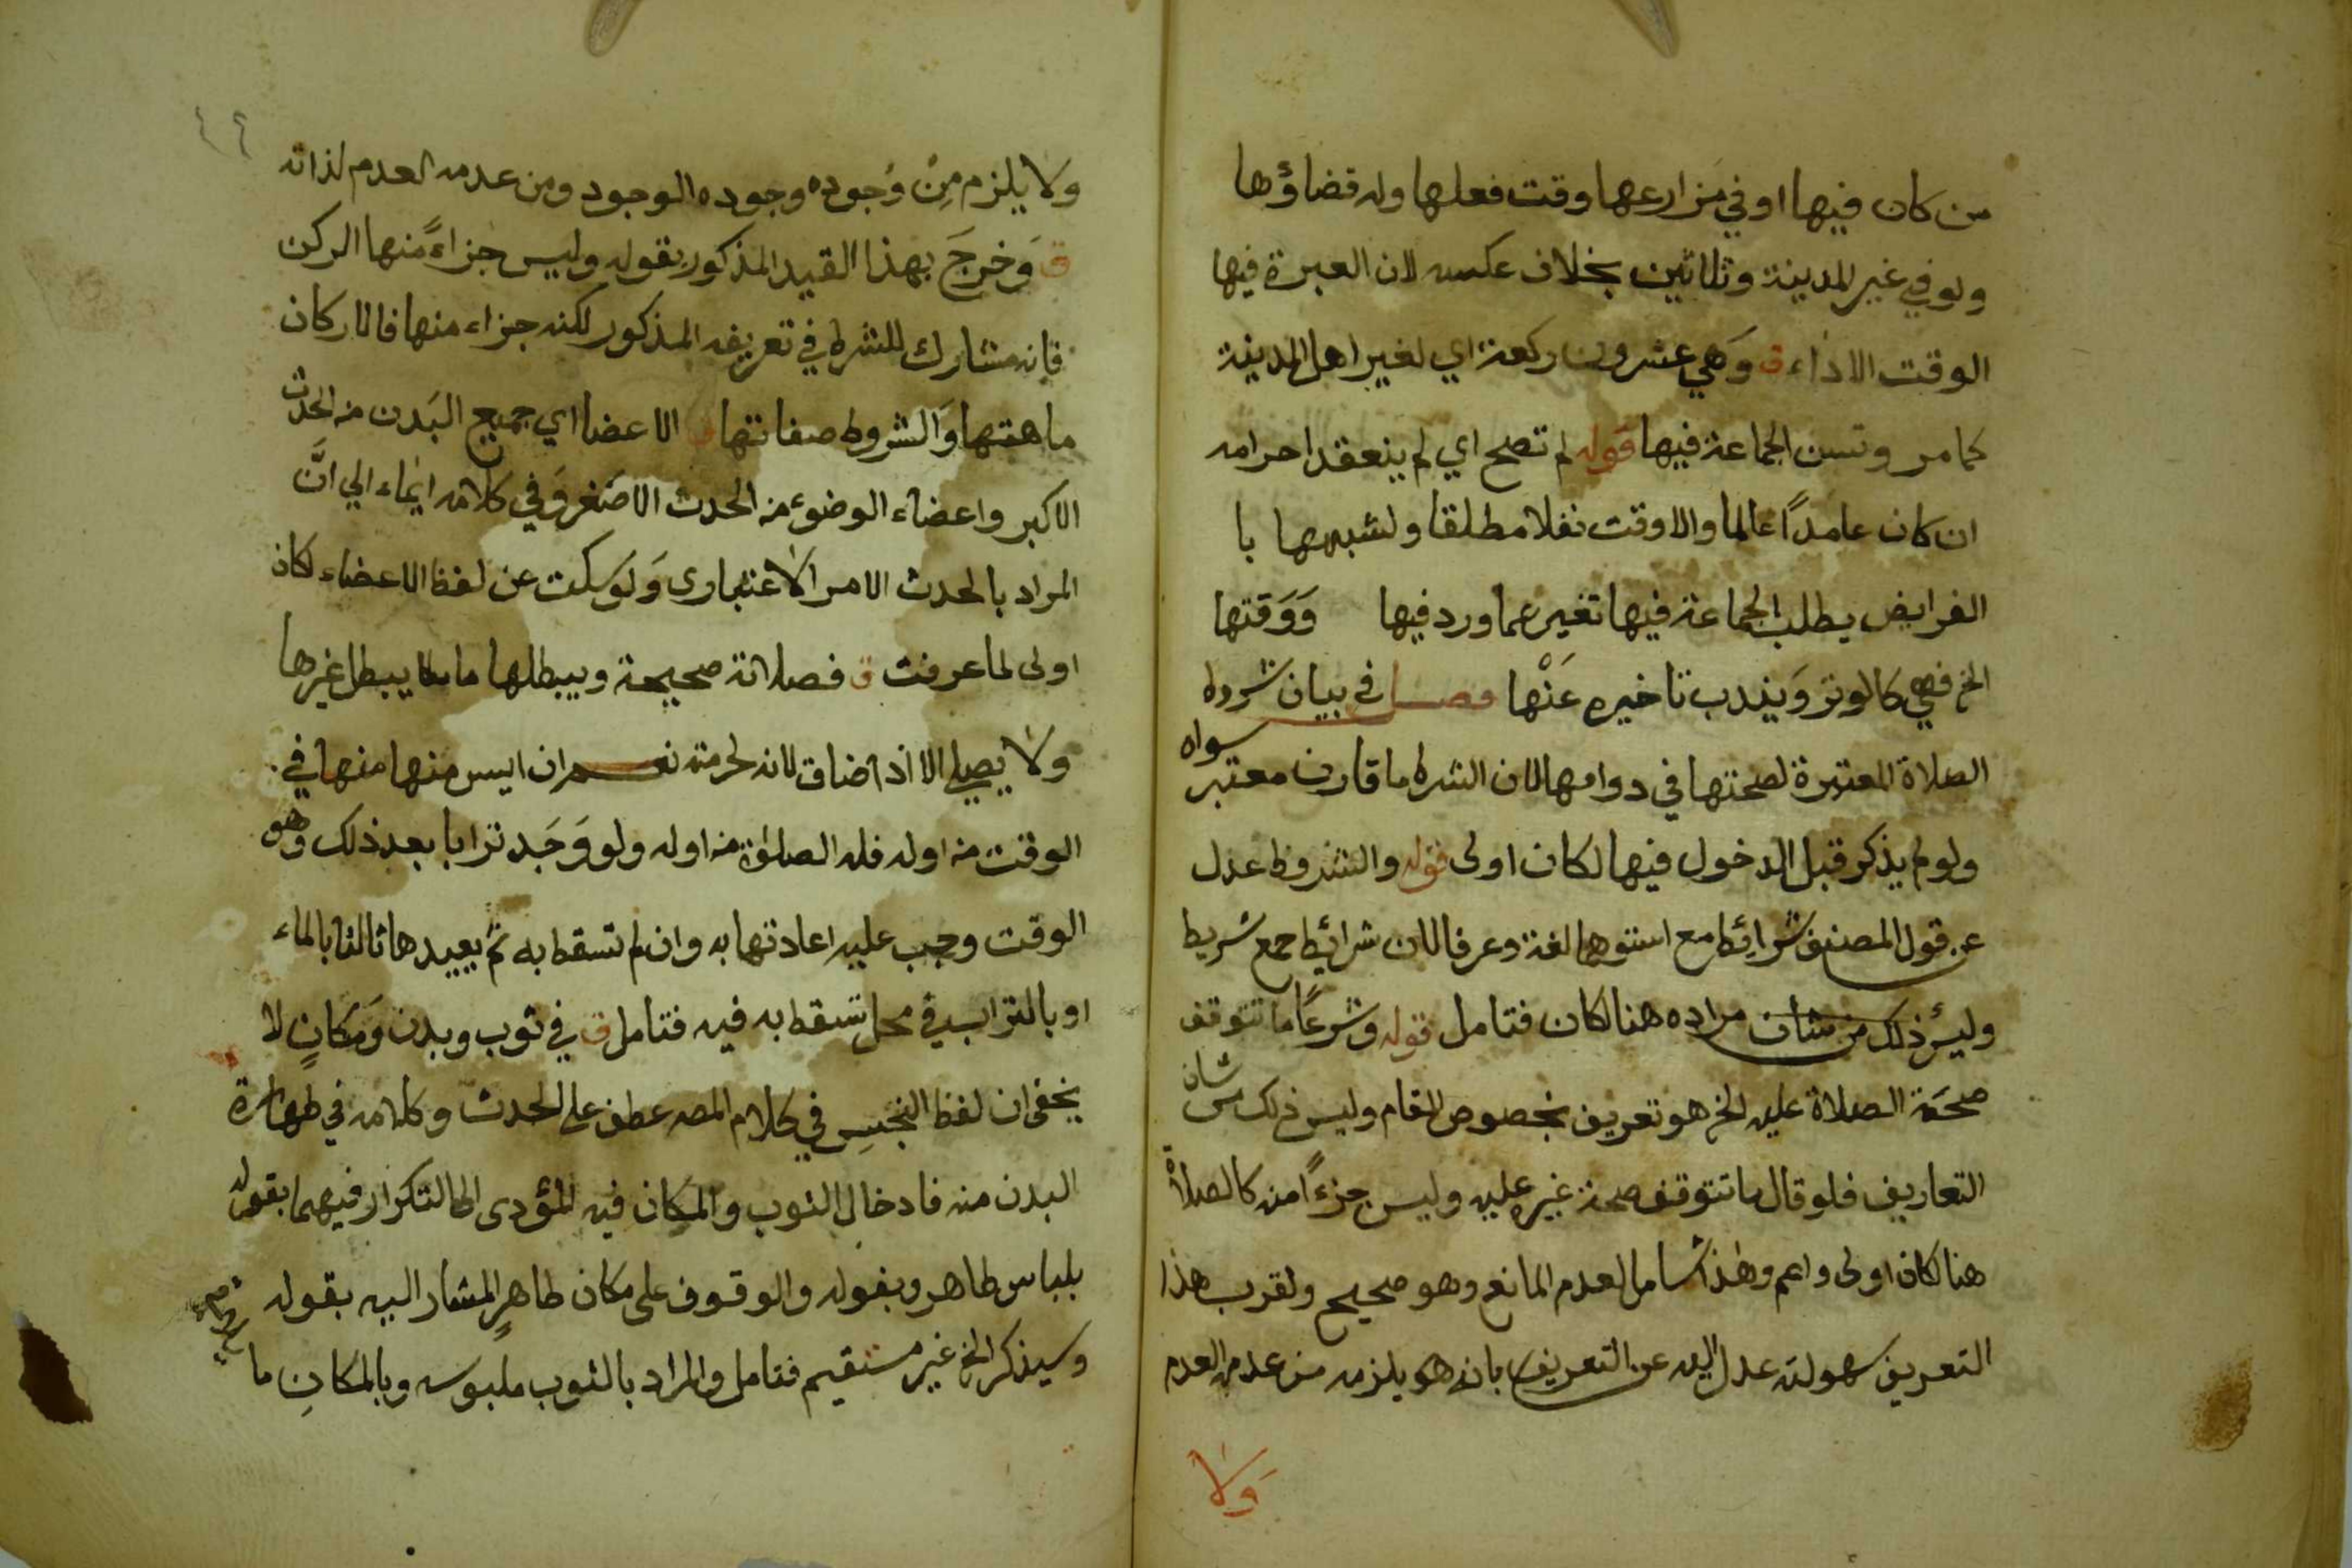 من كان فيها او في مزارعها وقت فعلها وله قضاؤها
ولو في غير المدينة وثلاثين بخلاف عكسه لان العبرة فيها
الوقت الاداء ق وهي عشرون ركعة اي لغير اهل المدينة
كما مر وتسن الجماعة فيها قوله لم تصح اي لم ينعقد احرامه
ان كان عامداً عالما والا وقت نفلا مطلقا ولشبهها با
الفرايض بطلب الجماعة فيها تغير عما ورد فيها ووقتها
الخ فهي كالوتر ويندب تاخيره عنها فصل في بيان شروط
الصلاة المعتبرة لصحتها في دوامها لان الشرط ما قارن معتبر سواه
ولو لم يذكر قبل الدخول فيها لكان اولى قوله والشروط عدل
عن قول المصنف شرائط مع استوهما لغة وعرفا لان شرائط جمع شريط
وليس ذلك من شان مراده هنا لكان فتامل قوله وشرعاً ما تتوقف
صحة الصلاة عليه الخ هو تعريف بخصوص المقام وليس ذلك من شان
التعاريف فلو قال ما تتوقف صحة غيره عليه وليس جزءاً منه كالصلاة
هنا لكان اولى واعم وهذا شامل لعدم المانع وهو صحيح ولقرب هذا
التعريف سهولته عدل اليه عن التعريف بانه هو يلزمه من عدمه العدم
ولا
ولا يلزم من وجوده وجوده الوجود ومن عدمه العدم لذاته
ق وخرج بهذا القيد المذكور بقوله وليس جزاءً منها الركن
فانه مشارك للشرط في تعريفه المذكور لكنه جزاء منها فالاركان
ماهتها والشروط صفاتها ق الاعضا اي جميع البدن من الحدث
الاكبر واعضاء الوضوء من الحدث الاصغر وفي كلامه ايماء الي انَّ
المراد بالحدث الامر الاعتباري ولو سكت عن لفظ الاعضاء لكان
اولى لما عرفت ق فصلاتة صحيحة ويبطلها ما يبطل غيرها
ولا يصلي الا اذا ضاق لانه لحرمته نعم ان ايس منها منها في
الوقت من اوله فله الصلوة من اوله ولو وجد ترابا بعد ذلك وهو
الوقت وجب عليه اعادتها به وان لم تسقط به ثم يعيدها ثالثا بالماء
او بالتراب في محل تسقط به فيه فتامل ق في ثوب وبدن ومكانٍ لا
يخفى ان لفظ النجس في كلام المصه عطف على الحدث وكلامه في طهارة
البدن منه فادخال الثوب والمكان فيه المؤدى الى التكرار فيهما بقوله
بلباس طاهر وبقوله والوقوف على مكان طاهرٍ المشار اليه بقوله
وسيذكر الخ غير مستقيم فتامل والمراد بالثوب ملبوسه وبالمكان ما